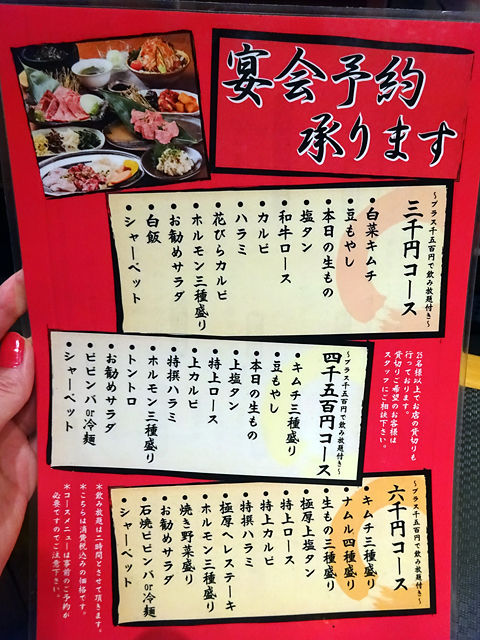 宴会予約
承ります
三千円コース
～プラス千五百円で飲み放題付き～
●白菜キムチ
●豆もやし
●本日の生もの
●塩タン
●和牛ロース
●カルビ
●ハラミ
●花びらカルビ
●ホルモン三種盛り
●お勧めサラダ
●白飯
●シャーベット
25名様以上でお店の貸切りも
行っております。
貸切りご希望のお客様は
スタッフにご相談下さい。
四千五百円コース
～プラス千五百円で飲み放題付き～
●キムチ三種盛り
●豆もやし
●本日の生もの
●上塩タン
●特上ロース
●上カルビ
●特撰ハラミ
●ホルモン三種盛り
●トントロ
●お勧めサラダ
●ビビンバor冷麺
●シャーベット
六千円コース
～プラス千五百円で飲み放題付き～
●キムチ三種盛り
●ナムル四種盛り
●生もの三種盛り
●極厚上塩タン
●特上ロース
●特上カルビ
●特撰ハラミ
●極厚ヘレステーキ
●ホルモン三種盛り
●焼き野菜盛り
●お勧めサラダ
●石焼ビビンバor冷麺
●シャーベット
＊飲み放題は二時間とさせて頂きます。
＊こちらは消費税込みの価格です。
＊コースメニューは事前のご予約が
必要ですのでご注意下さい。